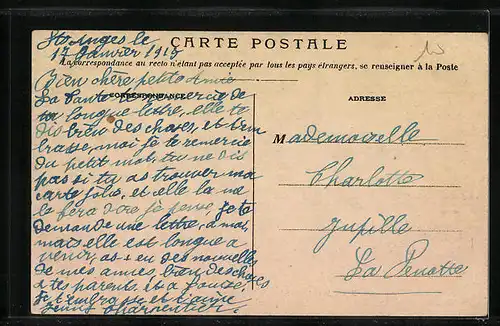 St Anges le
17 Janvier 1918
CARTE POSTALE
La correspondance au recto n'étant pas acceptée par tous les pays étrangers, se renseigner à la Poste
Bien chère petite Amie
CORRESPONDANCE
ADRESSE
La Tante te remercie de
ta longue lettre, elle te
dis bien des choses, et t'em
brasse, moi je te remercie
du petit mot, tu ne dis
pas si tu as trouver ma
carte jolie, et elle la
fera dire je pense, je te
demande une lettre, a moi,
mais elle est longue a
venir, as-tu des nouvelles
de mes amies, bien des choses
a tes parents, et a
Je t'embrasse, et t'aime
Jenny Charpentier.
Mademoiselle
Charlotte
Jupille
La Penotte